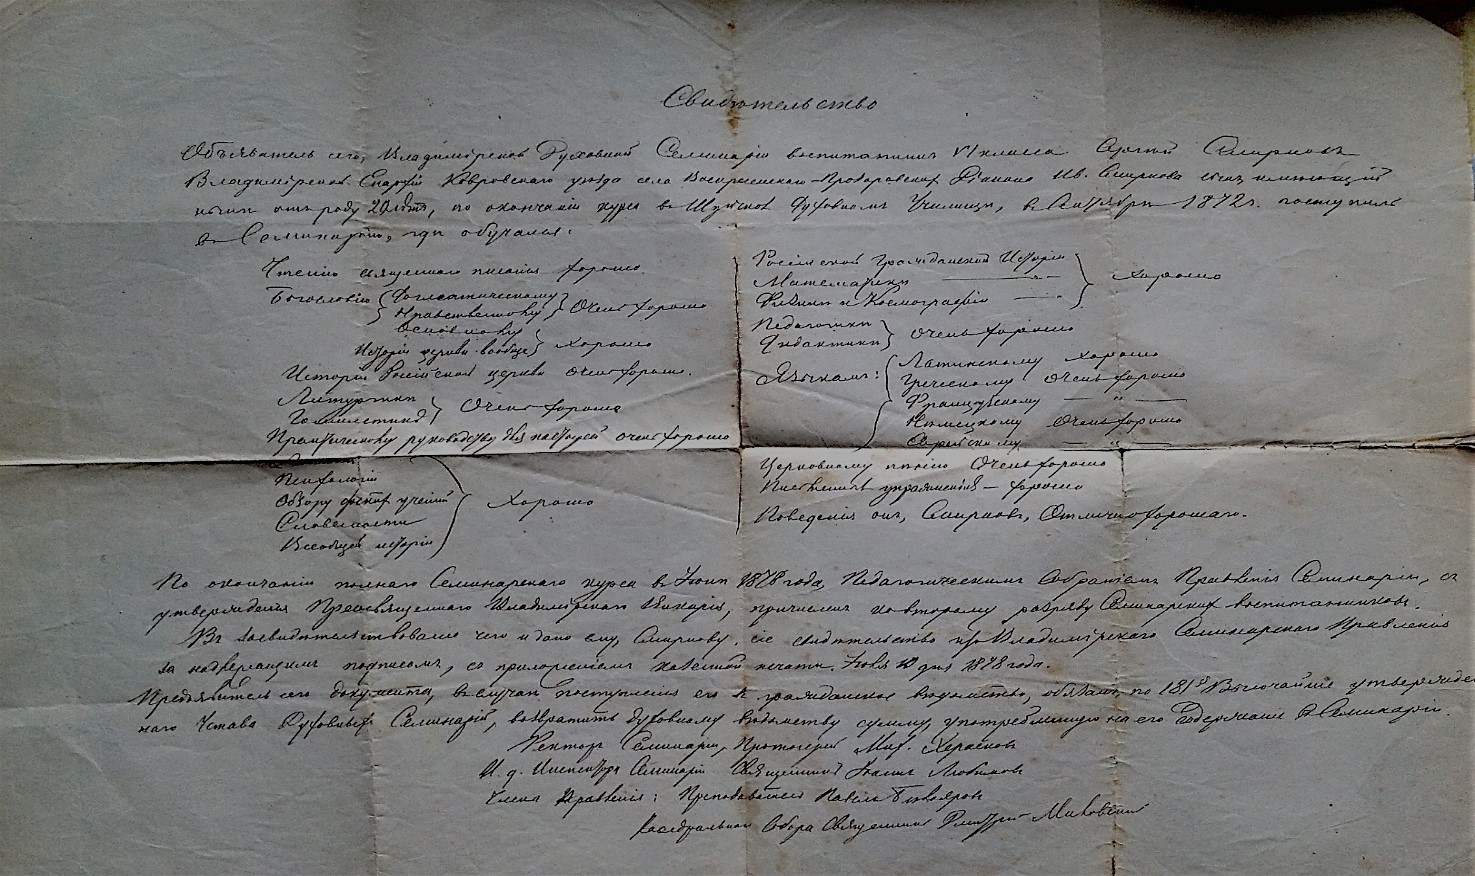 Свидѣтельство
Объявитель сего, Владимірской Духовной Семинаріи воспитанникъ VI класса Сергей Смирновъ
Владимірской Епархіи Ковровскаго уѣзда села Воскресенскаго Ив. Смирнова сынъ, имѣющій
нынѣ отъ роду 20 лѣтъ, по окончаніи курса въ Шуйскомъ Духовномъ Училищѣ, въ Сентябрѣ 1872 г. поступилъ
въ Семинарію, гдѣ обучался:
Чтенію священнаго писанія хорошо.
Богословію { Догматическому
Нравственному } Очень хорошо
Основному
Исторіи церкви вообще } Хорошо
Исторіи Россійской церкви очень хорошо.
Литургики
Гомилетикѣ } Очень хорошо
Практическому руководству для пастырей очень хорошо
Психологіи
Обзору философ. ученій } Хорошо
Словесности
Всеобщей исторіи
Россійской Гражданской Исторіи
Математики — „ — } Хорошо
Физики и Космографіи —
Педагогики
Дидактики } Очень хорошо
Языкамъ: { Латинскому хорошо
Греческому Очень хорошо
Французскому — „ —
Нѣмецкому Очень хорошо
Еврейскому — „ —
Церковному пѣнію Очень хорошо
Письменныя упражненія — хорошо
Поведенія онъ, Смирновъ, Отлично хорошаго.
По окончаніи полнаго Семинарскаго курса въ Іюнѣ 1878 года, Педагогическимъ Собраніемъ Правленія Семинаріи, съ
утвержденія Преосвященнаго Владимірскаго Викарія, причисленъ ко второму разряду Семинарскихъ воспитанниковъ.
Въ засвидѣтельствованіе чего и дано ему, Смирнову, сіе свидѣтельство изъ Владимірскаго Семинарскаго Правленія
за надлежащимъ подписомъ, съ приложеніемъ казенной печати. Іюля дня 1878 года.
Предъявитель сего документа, въ случаѣ поступленія его въ гражданское вѣдомство, обязанъ, по 181 § Высочайше утвержден
наго Устава Духовныхъ Семинарій, возвратить духовному вѣдомству сумму, употребленную на его содержаніе въ Семинаріи.
Ректоръ Семинаріи, Протоіерей Мих. Херасковъ
И. д. Инспектора Семинаріи Священникъ Іоаннъ Любимовъ
Члены Правленія: Преподаватель Павелъ
Каѳедральнаго Собора Священникъ